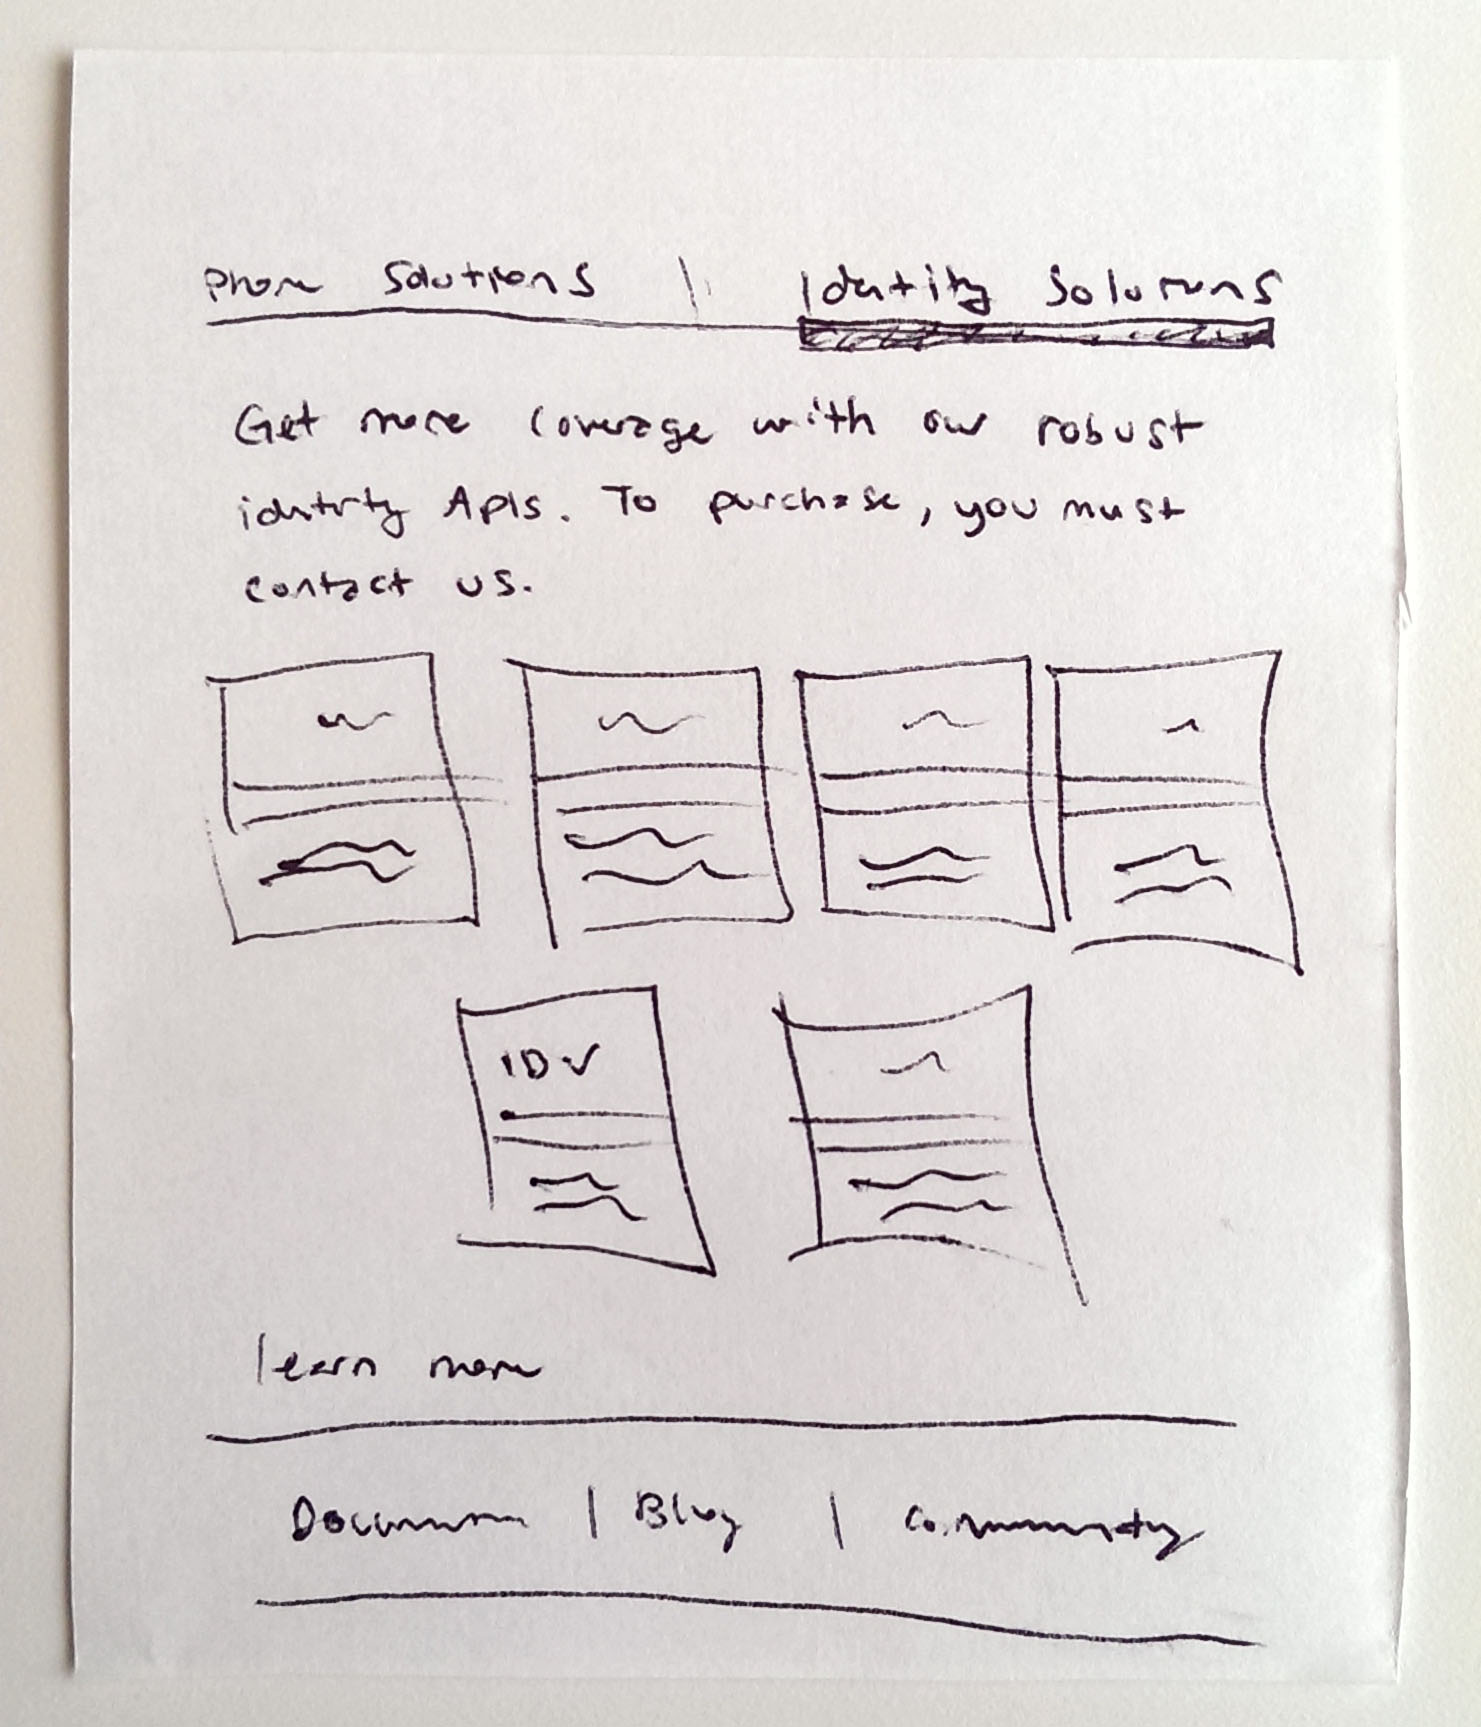 Phone Solutions | Identity Solutions
Get more coverage with our robust
identity APIs. To purchase, you must
contact us.
IDV
learn more
| Blog | Community